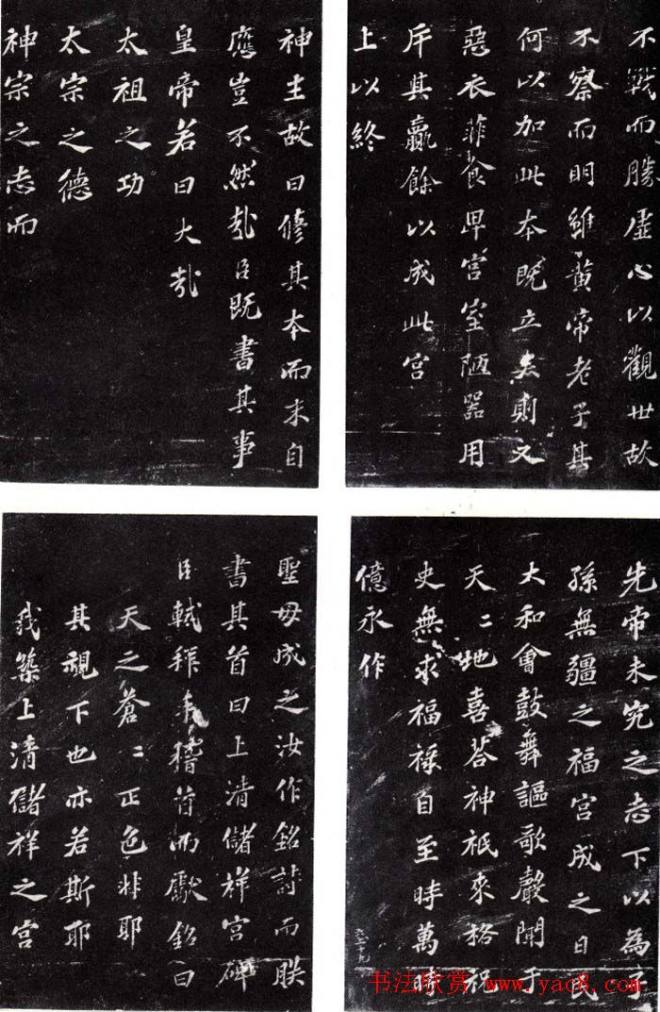 不戰而勝虛心以觀世故
不察而明雖黃帝老子其
何以加此本既立矣則又
惡衣菲食卑宮室陋器用
斥其贏餘以成此宮
上以終
先帝未究之志下以為子
孫無疆之福宮成之日民
大和會鼓舞謳歌聲聞于
天二地喜荅神祇來格祝
史無求福祿自至時萬時
億永作
神主故曰修其本而末自
應豈不然哉臣既書其事
皇帝若曰大哉
太祖之功
太宗之德
神宗之志而
聖母成之汝作銘詩而朕
書其首曰上清儲祥宮碑
臣軾拜手稽首而獻銘曰
天之蒼二正色非耶
其視下也亦若斯耶
我築上清儲祥之宮
书法欣赏 www.yac8.com